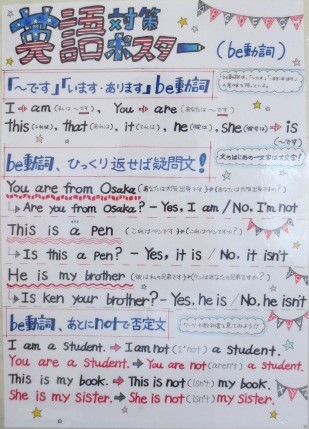 英語対策ポスター (be動詞)
「〜です」「います・あります」be動詞
I ⇨ am (私は〜です), You ⇨ are (あなたは〜です)
this(これは), that(あれは), it(それは), he(彼は), she(彼女は) ⇨ is
(〜です)
be動詞、ひっくり返せば疑問文!
文のはじめの一文字は大文字!
You are from Osaka
↳ Are you from Osaka? - Yes, I am / No, I'm not
This is a pen
↳ Is this a pen? - Yes, it is / No, it isn't
He is my brother
↳ Is ken your brother? - Yes, he is / No, he isn't
be動詞、あとにnotで否定文
I am a student. ⇨ I am not (I'm not) a student.
You are a student. ⇨ You are not (aren't) a student.
This is my book. ⇨ This is not (isn't) my book.
She is my sister. ⇨ She is not (isn't) my sister.